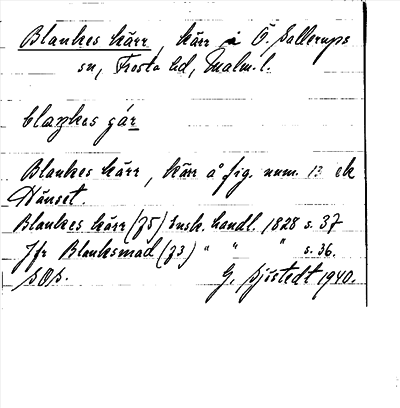 Blankes kärr, kärr å Ö. Sallerups
sn, Frosta hd, Malm. l.
blaŋkəs gár
Blankes kärr, kärr å fig. num. 13 ek
Hänset.
Blankes kärr (75) Ensk. handl. 1828 s. 37
Jfr Blanksmad (73) " " " s. 36.
G. Sjöstedt 1940.